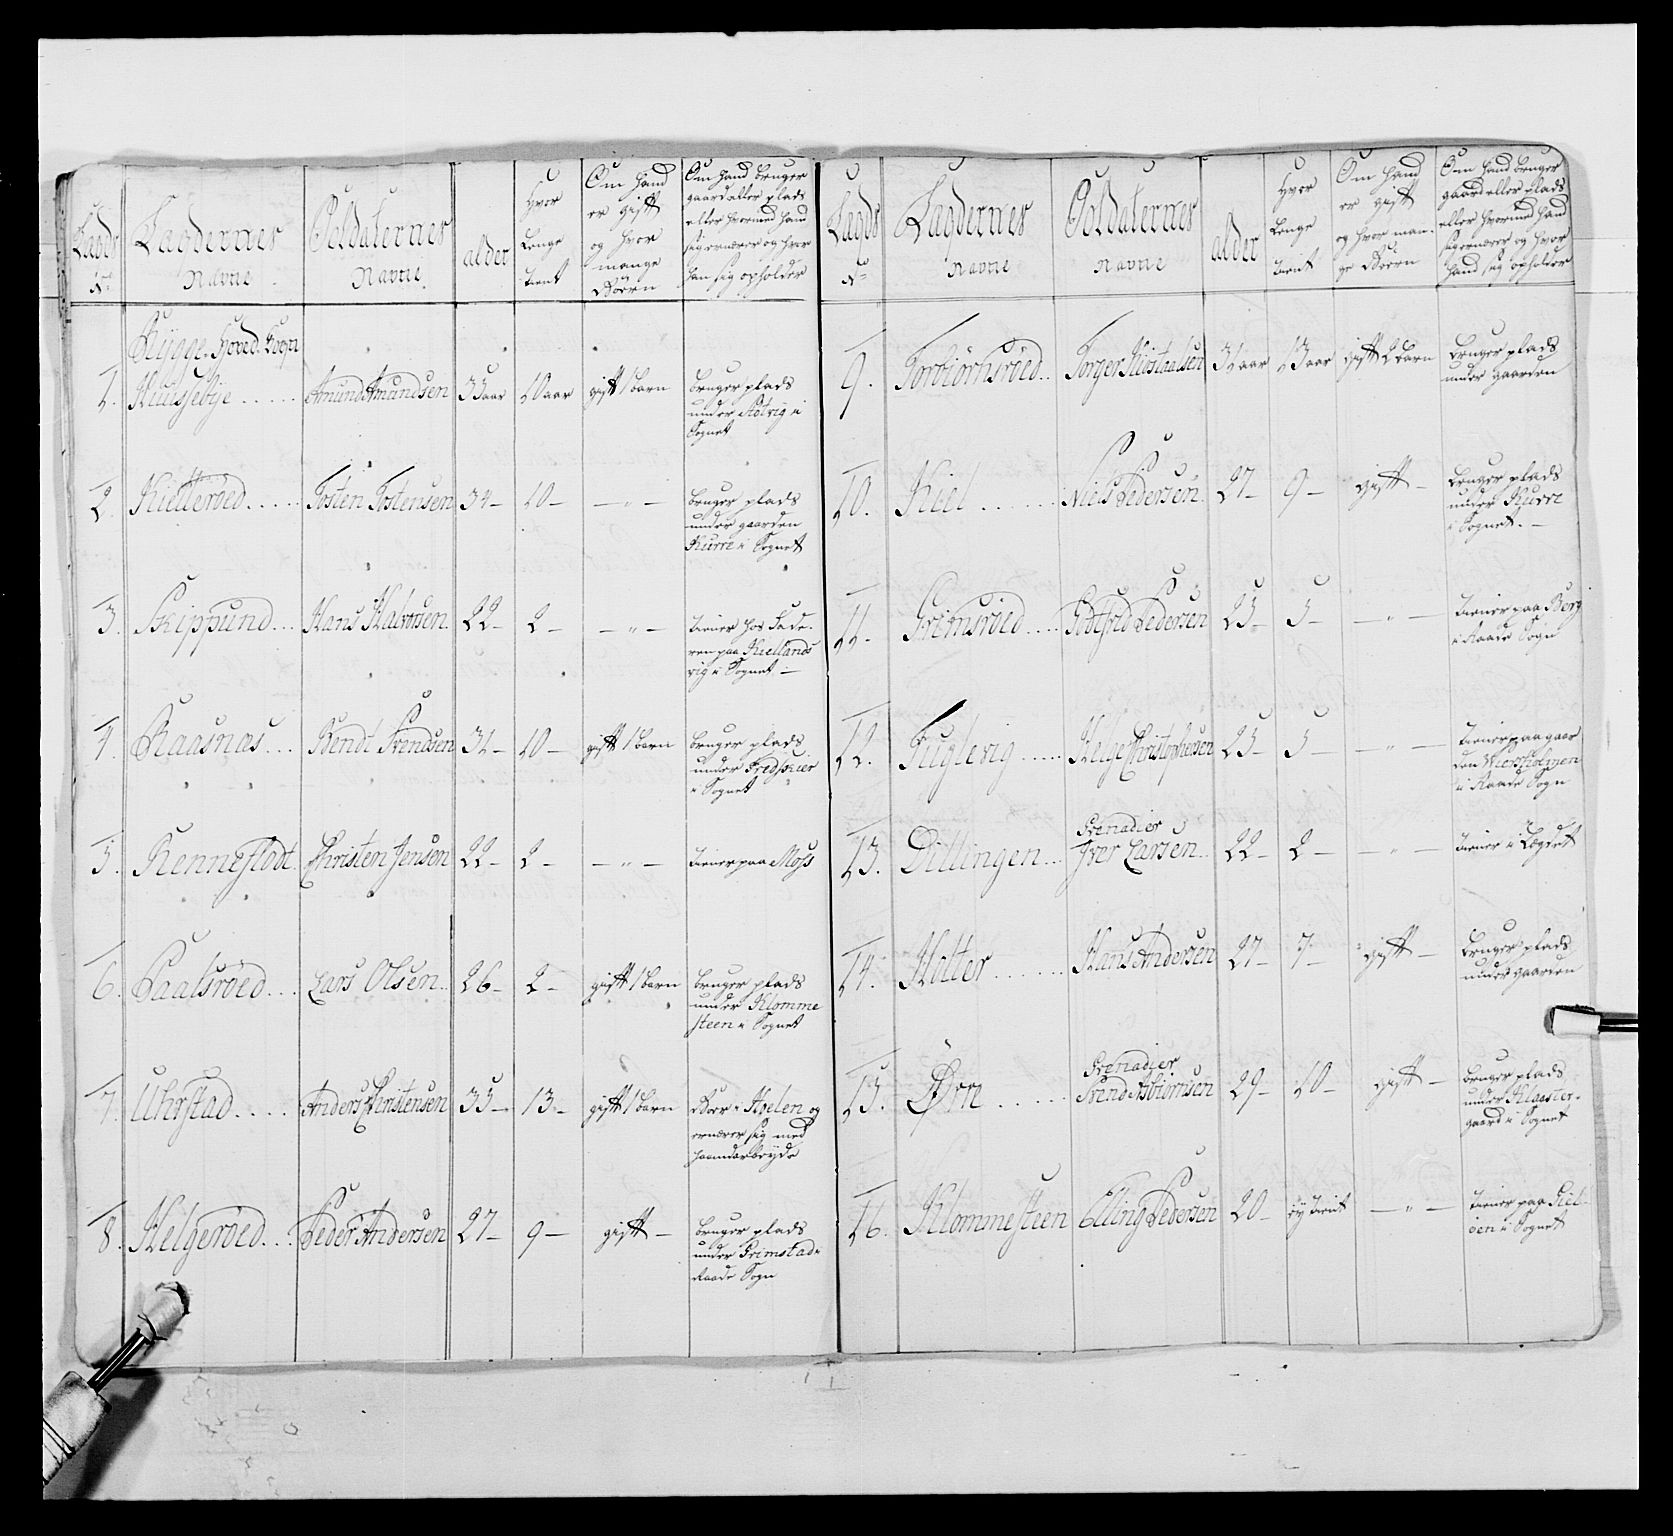 Lægds No
Lægdernes Navne
Soldaternes Navne
alder
Hvor Lenge tient
Om hand er gift og hvor mange Børn
Om hand bruger gaard eller plads eller hvormed hand sig ernærer og hvor han sig opholder
Rygge Hoved Sogn
1. Huusebye Amund Amundsen 35 aar 10 aar gift 1 barn bruger plads
under i
Sognet
2. Kielleröed Tosten Tostensen 34 10 — " — bruger plads
under gaarden
Kurre i Sognet
3. Skippund Hans Halvorsen 22 2 — " — tiener hos Fade-
ren paa Kiellands
vig i Sognet
4. Kaasnas Bendt Svendsen 31 10 gift 1 barn bruger plads
under
i Sognet
5. Kenneflodt Christen Jensen 22 2 — " — tiener paa Moss
6. Paalsröed Lars Olsen 26 2 gift 1 barn bruger plads
under Klomme
steen i Sognet
7. Uhrstad Anders Christensen 35 13 gift 1 barn Boer i Hvelen og
ernærer sig med
haandarbeyde
8. Helgeröed Peder Andersen 27 9 gift bruger plads
under Grimstad i
Raade Sogn
Lægds No
Lægdernes Navne
Soldaternes Navne
alder
Hvor Lenge tient
Om hand er gift og hvor man-ge Børn
Om hand bruger gaard eller plads eller hvormed hand sig ernærer og hvor hand sig opholder
9. Torbiörnsröed Torger 31 aar 13 aar gift 2 barn bruger plads
under gaarden
10. Kiel Niels Pedersen 27 9 gift bruger plads
under Kurre
i Sognet
11. Grimsröed Gotfred Pedersen 25 5 — " — tiener paa Berg
i Raade Sogn
12. Fuglevig Helge Christophersen 25 5 — " — tiener paa gaar
den
i Raade Sogn
13. Dillingen Grenadier
Iver Larsen 22 2 — " — tiener i Lægdet
14. Holter Hans Andersen 27 7 gift bruger plads
under gaarden
15. Örre Grenadier
Svend Asbiörnsen 29 10 gift bruger plads
under Kloester-
gaard i Sognet
16. Klommesteen Elling Pedersen 20 ey tient — " — tiener paa Kiel-
öen i Sognet